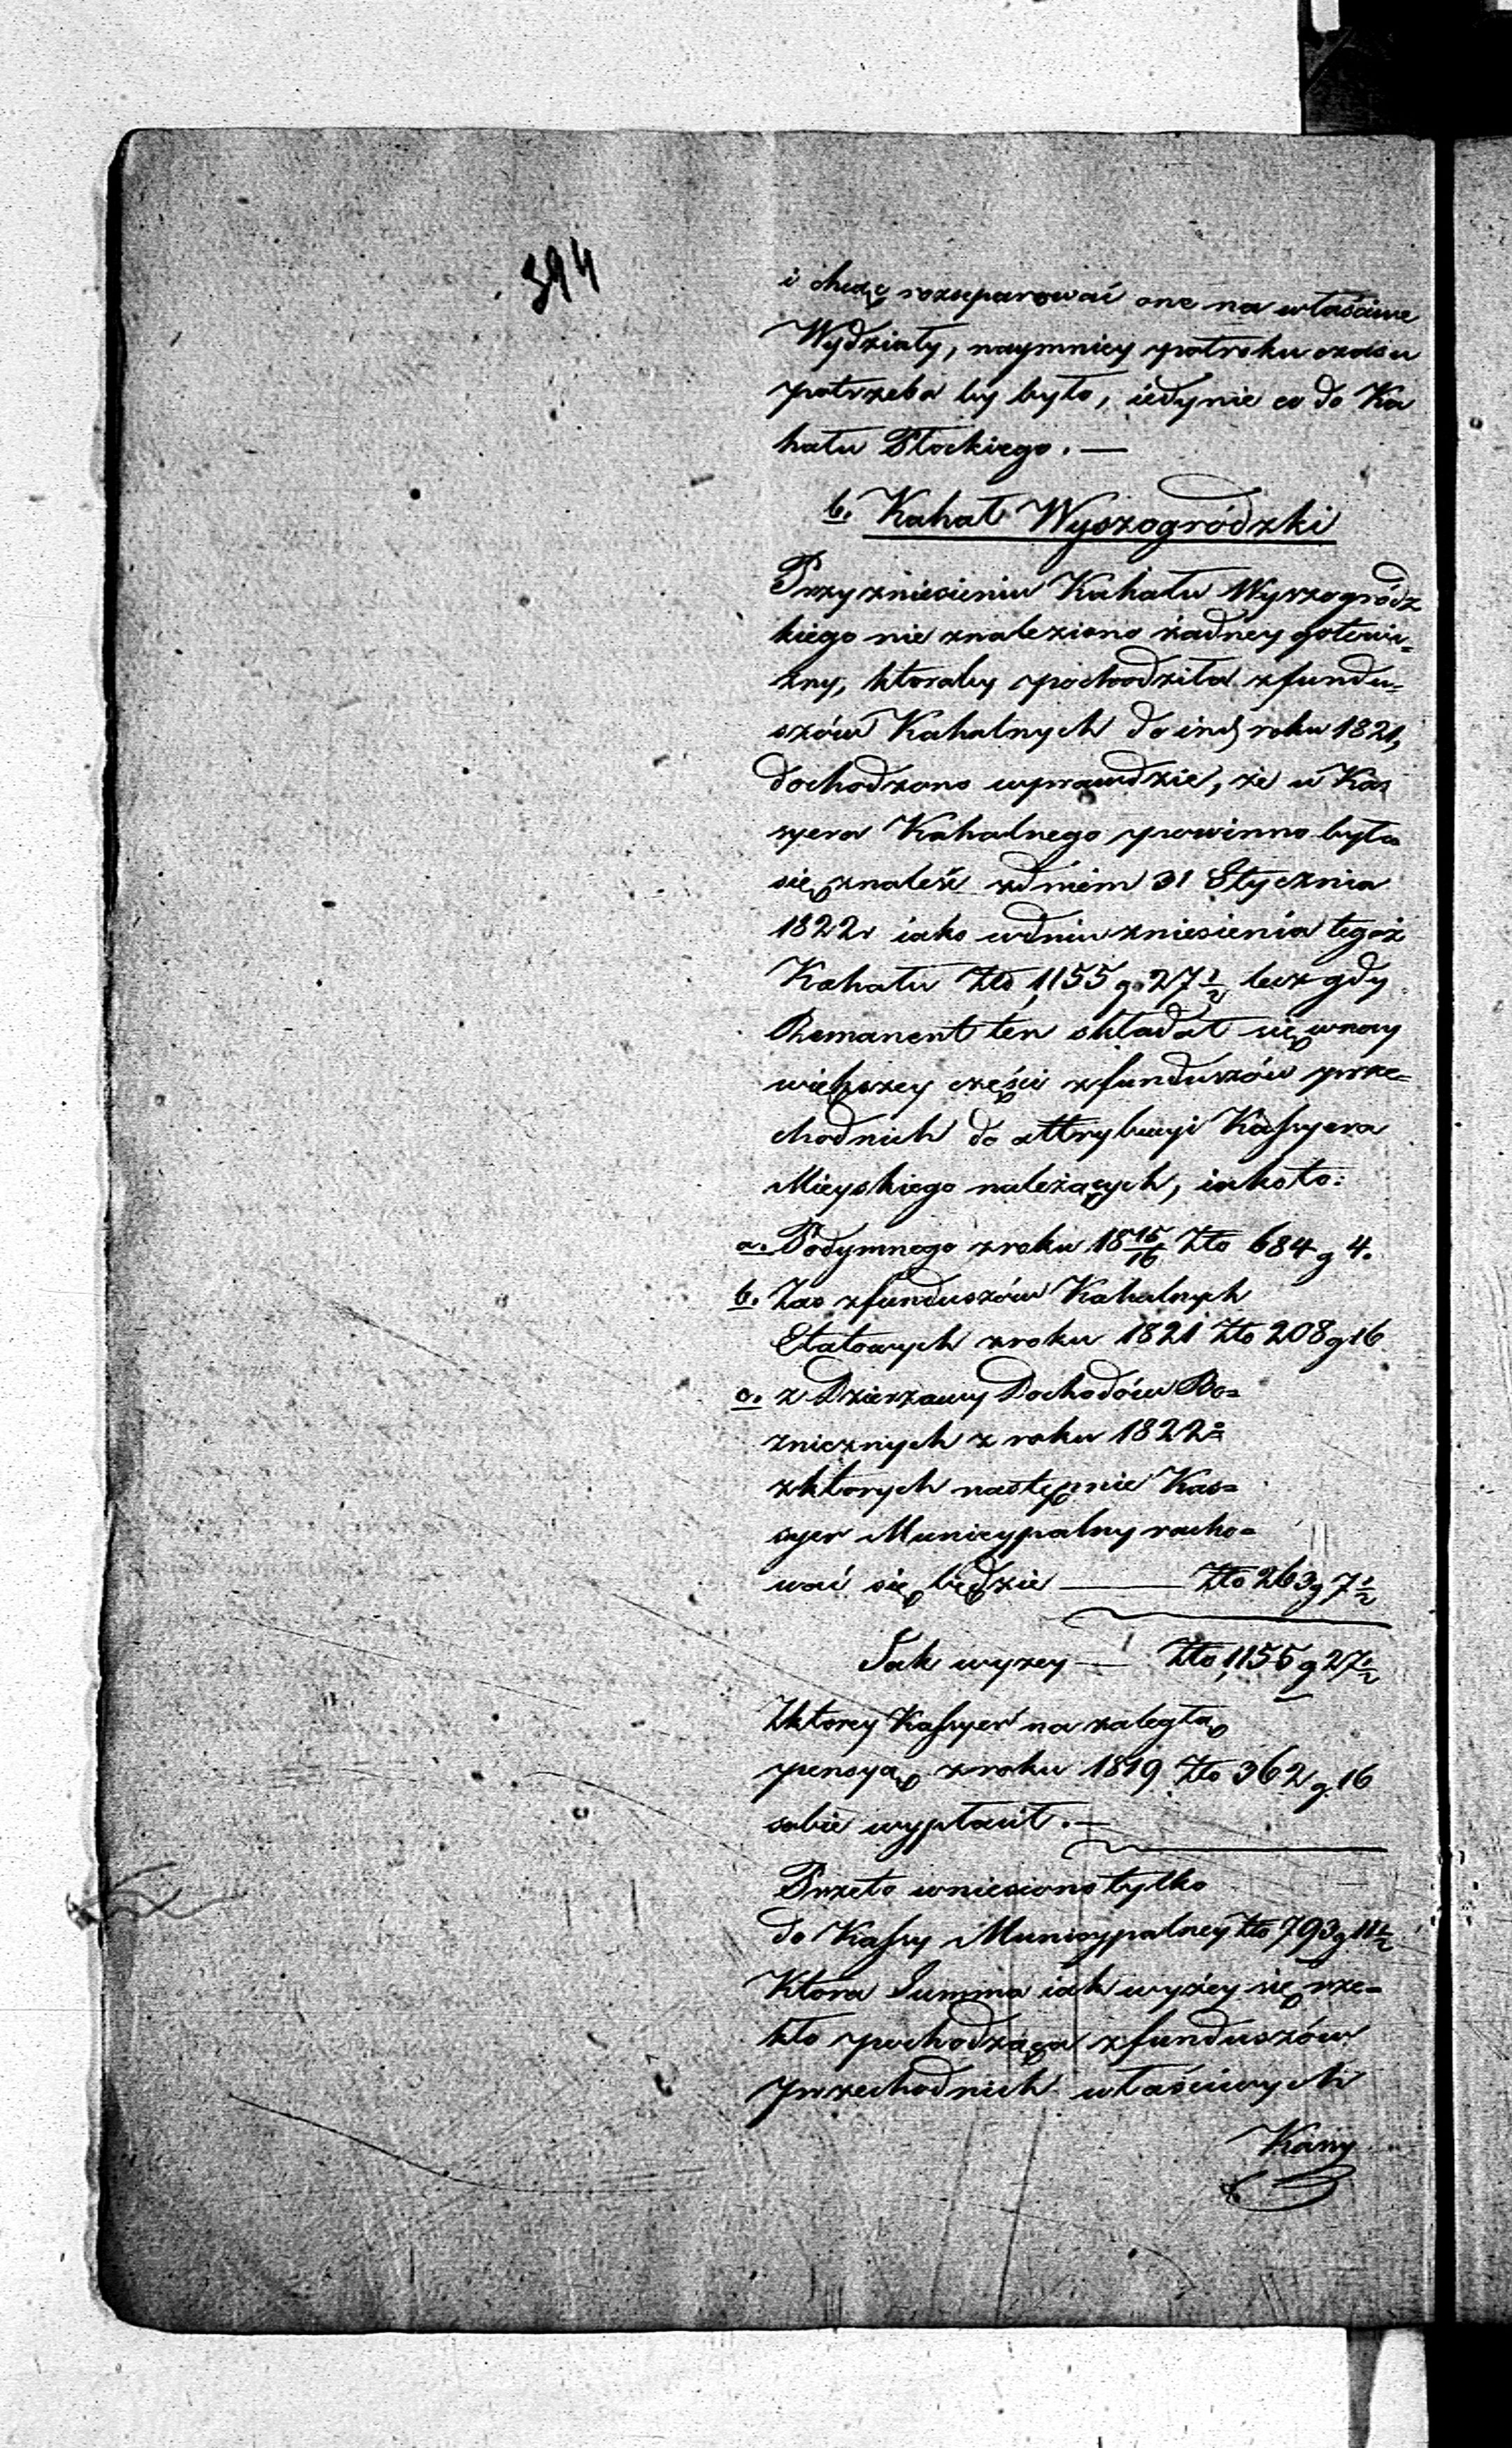 394
i chcąc rozseparować one na właściwe
Wydziały, naymniey potroku czasu
potrzeba by było, iedynie co do Ka
hału Płockiego. —
b. Kahał Wyszogródzki
Przy zniesieniu Kahału Wyszogródz
kiego nie znaleziono żadney gotowi=
zny, ktoraby pochodziła z fundu=
szów Kahalnych do roku 1821,
dochodzono wprawdzie, że u Kas
syera Kahalnego powinno było
się znaleść z dniem 31 Stycznia
1822r iako w dniu zniesienia tegoż
Kahału Zło 1,155 g. 27 1/2 lecz gdy
Remanent ten składał się w nay
większey części z funduszów prze=
chodnich do attrybucyi Kassyera
Mieyskiego należących, iako to:
a. Podymnego z roku 18 15/16 Zło 684 g 4.
b. Zas z funduszów Kahalnych
Etatowych z roku 1821 Zło 208 g 16
c. z Dzierzawy Dochodów Bo=
znicznych z roku 1822=
z ktorych następnie Kas=
syer Municypalny racho=
wać się będzie — Zło 263 g 7 1/2
Jak wyzey — Zło 1,155 g 27 1/2
Z ktorey Kassyer na zaległą
pensyą z roku 1819 Zło 362 g. 16
sobie wypłacił. —
Przeto wniesiono tylko
do Kassy Municypalney Zło 793 g 11 1/2
Ktora Summa iak wyżey się rze=
kło pochodząca z funduszów
przechodnich właściwych
Kassy